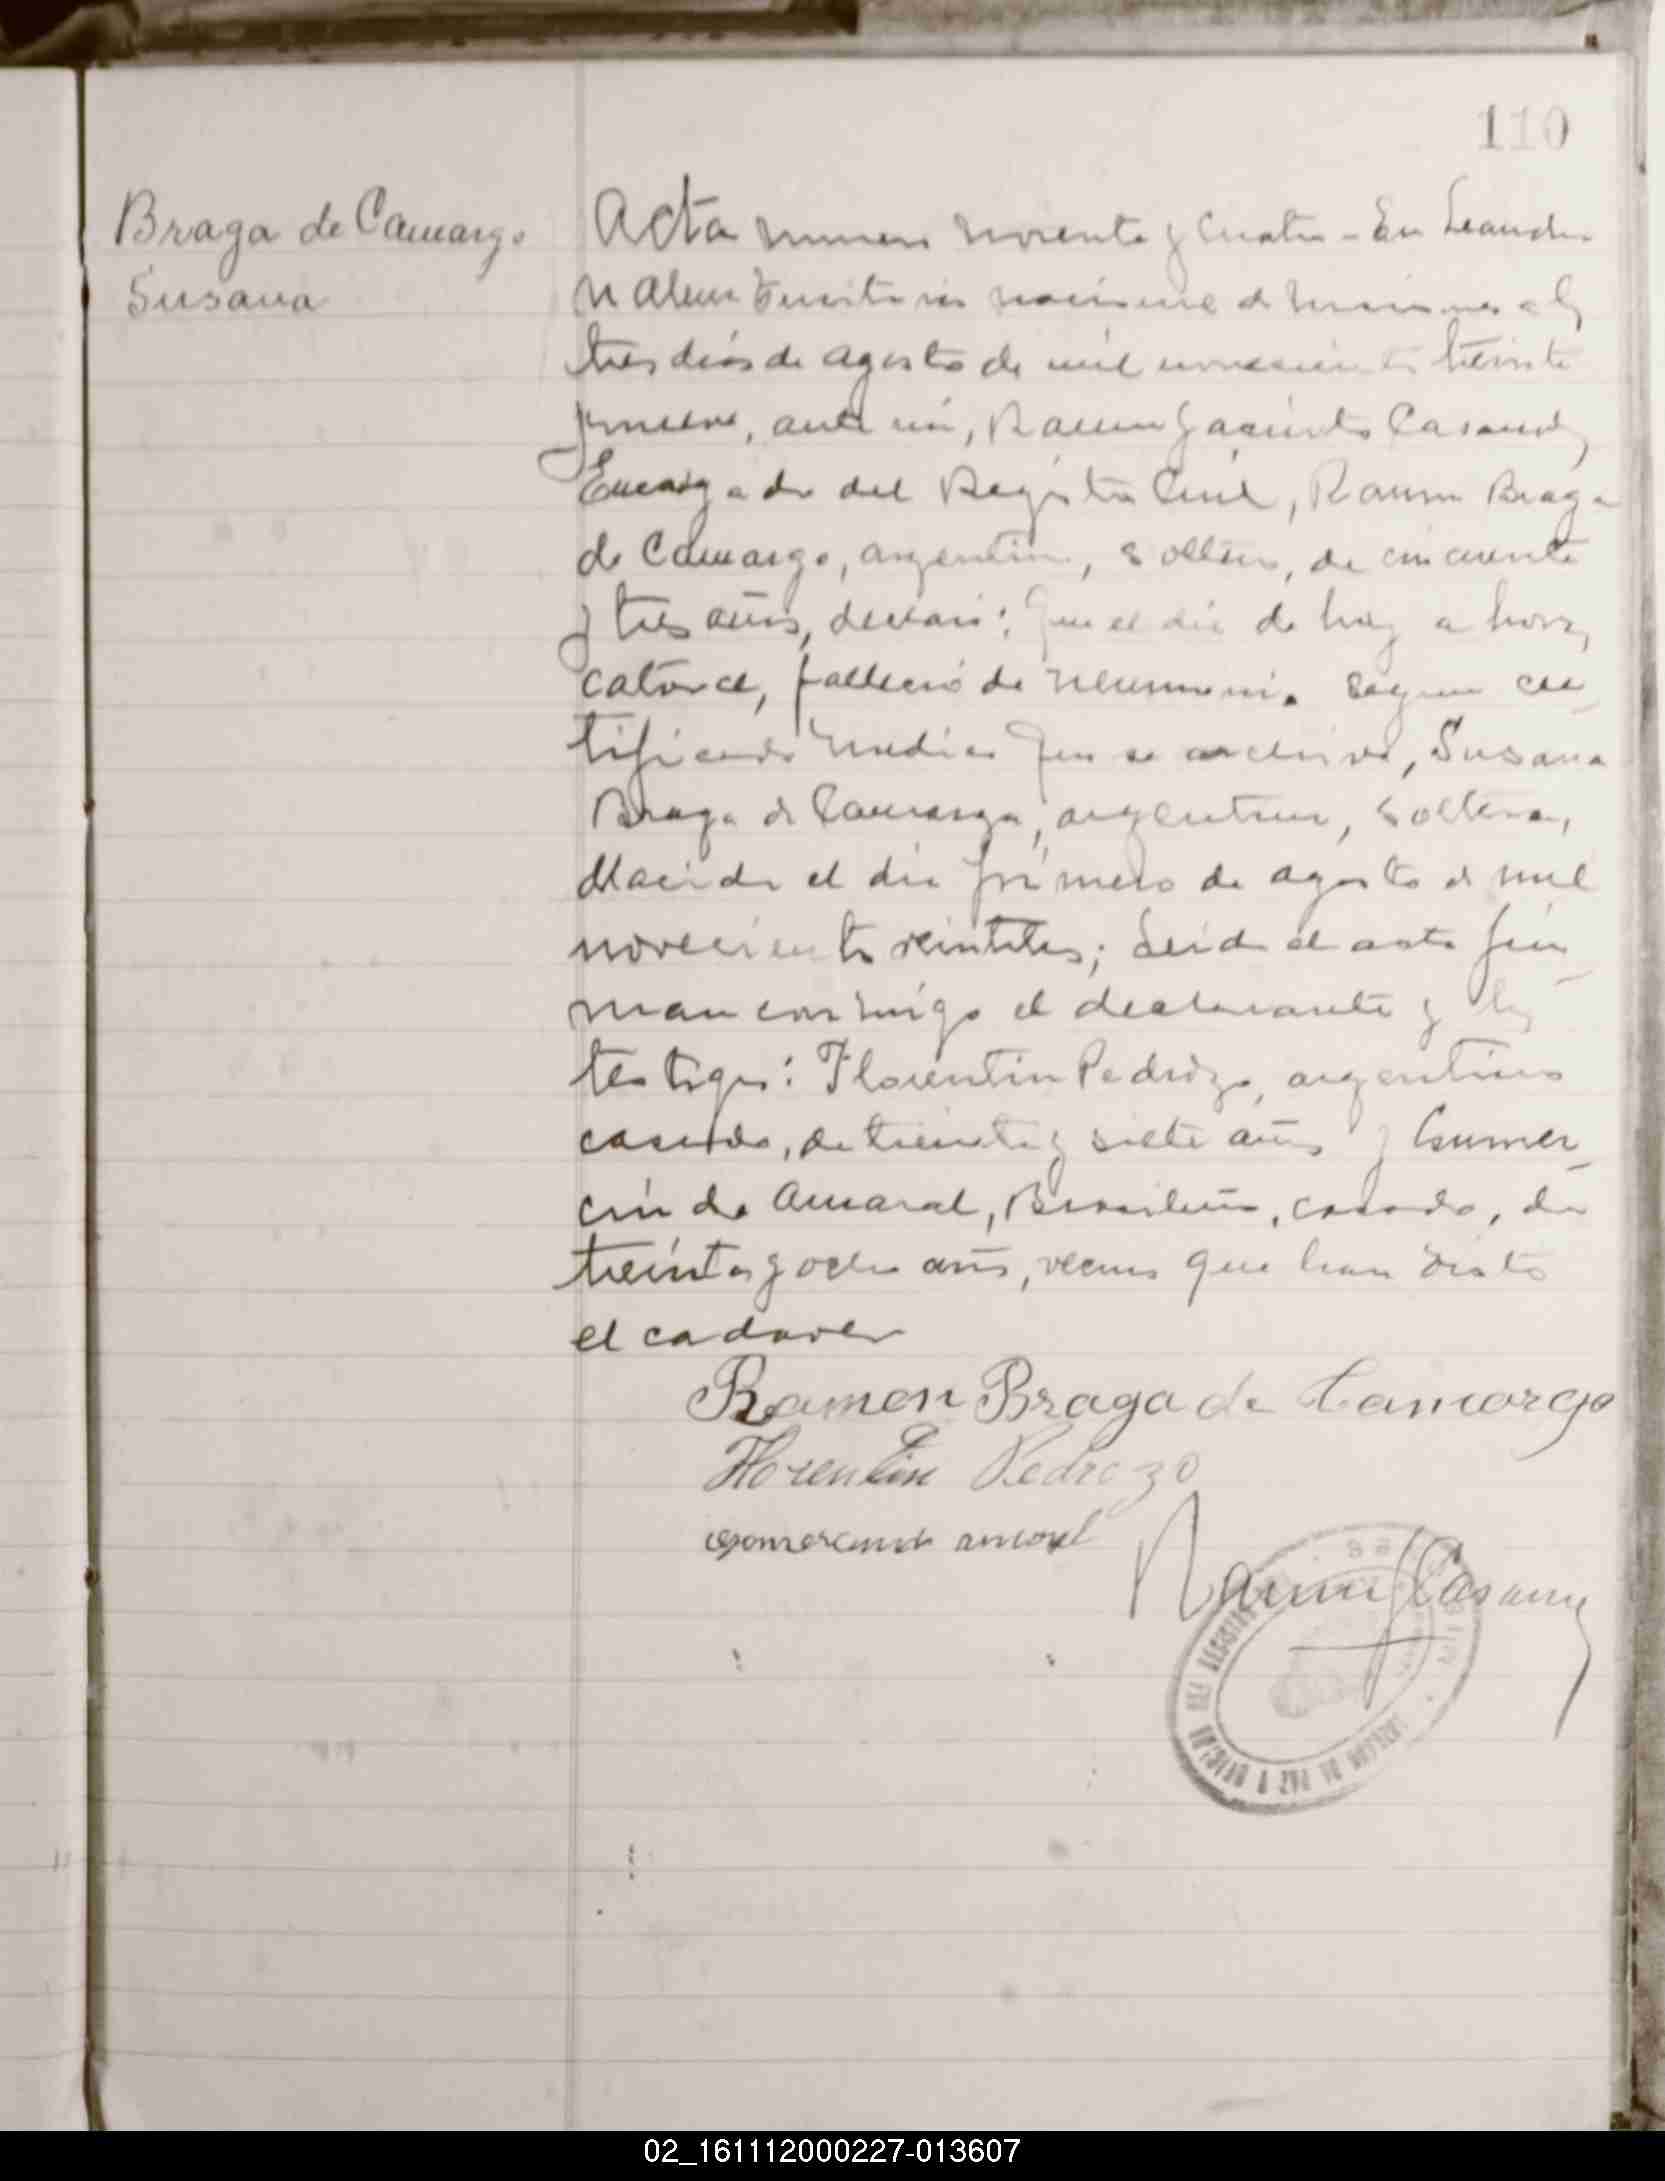 110
Braga de Camargo
Susana
Acta numero noventa y cuatro - En Leandro
N Alem Territorio nacional de misiones a los
tres dias de agosto de mil novecientos treinta
y nueve, ante mi, Ramon Jacinto Casanoz
Encargado del Registro Civil, Ramon Braga
de Camargo, argentino, soltero, de cincuenta
y tres años, declaró: Que el dia de hoy a horas
catorce, falleció de neumonia segun cer-
tificado medico que se archiva, Susana
Braga de Camargo, argentina, soltera,
Nacida el dia primero de agosto de mil
novecientos veintitres; Leida el acta fir-
man conmigo el declarante y los
testigos: Florentin Pedrozo, argentino
casado, de treinta y siete años y Gumer-
cindo Amaral, Brasileño, casado, de
treinta y ocho años, vecinos que han visto
el cadaver
Ramon Braga de Camargo
Florentin Pedrozo
Gomercindo amaral
Ramon J
JUZGADO DE PAZ Y OFICINA DEL REGISTRO
02_161112000227-013607